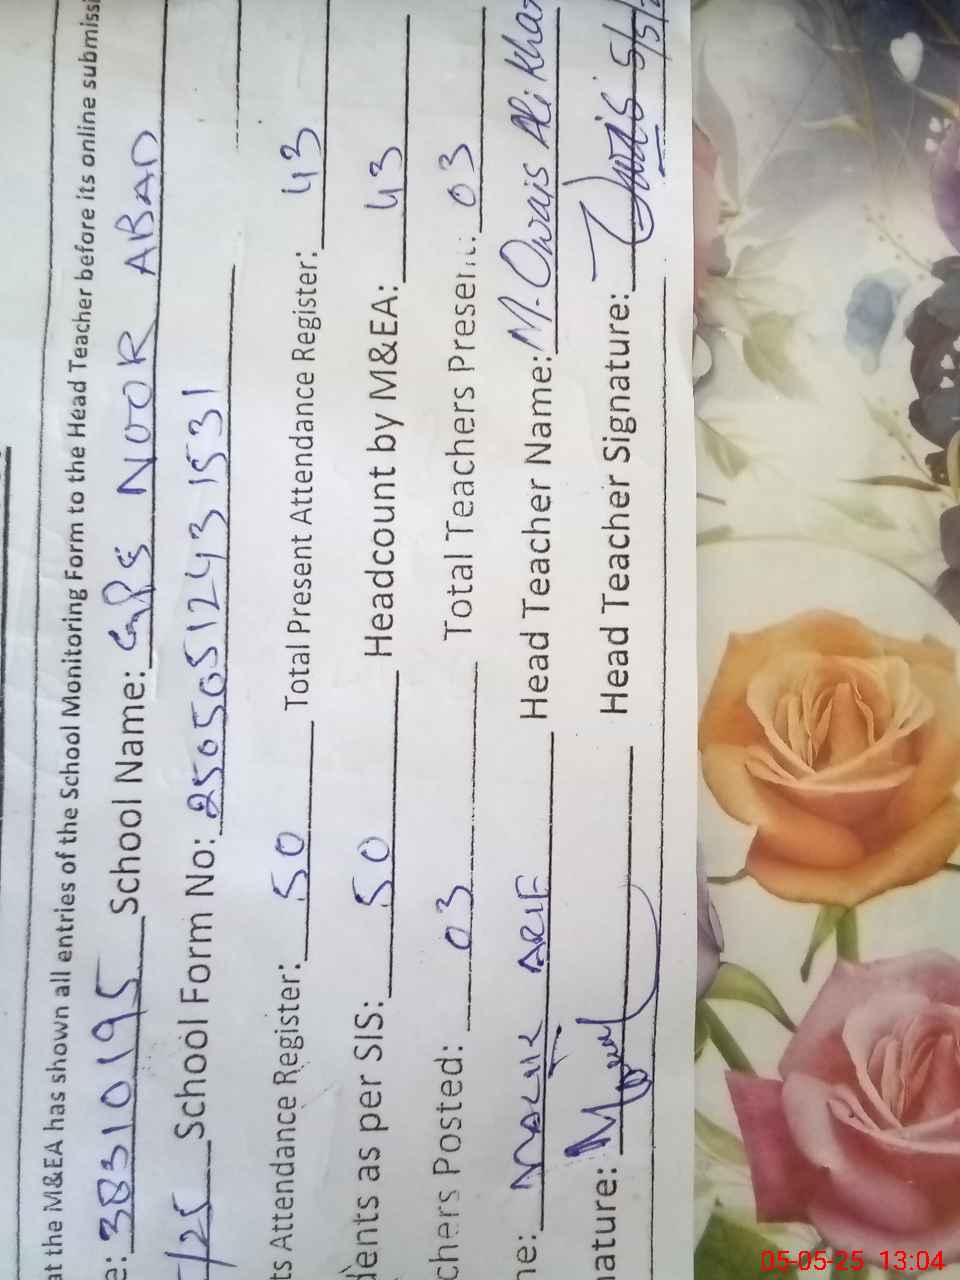 at the M&EA has shown all entries of the School Monitoring Form to the Head Teacher before its online submissi
e: 38310195 School Name: GPS NOOR ABAD
/25 School Form No: 25050512431531
ts Attendance Register: 50 Total Present Attendance Register: 43
dents as per SIS: 50 Headcount by M&EA: 43
chers Posted: 03 Total Teachers Present: 03
me: MALIK ARIF Head Teacher Name: M. Owais Ali Khan
nature: Head Teacher Signature: Owais 5/5/2
05-05-25 13:04